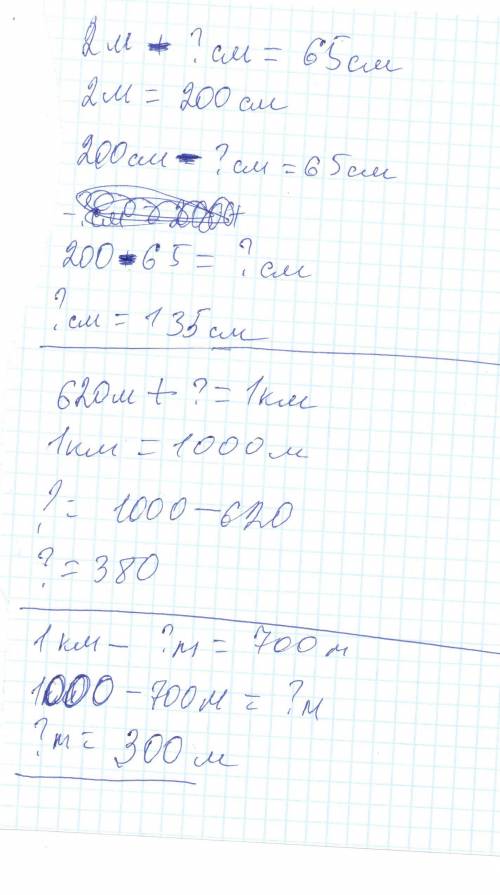 2м - ?см = 65см
2м = 200см
200см - ?см = 65см
200 - 65 = ?см
?см = 135см
620м + ? = 1км
1км = 1000м
? = 1000 - 620
? = 380
1км - ?м = 700м
1000 - 700м = ?м
?м = 300м